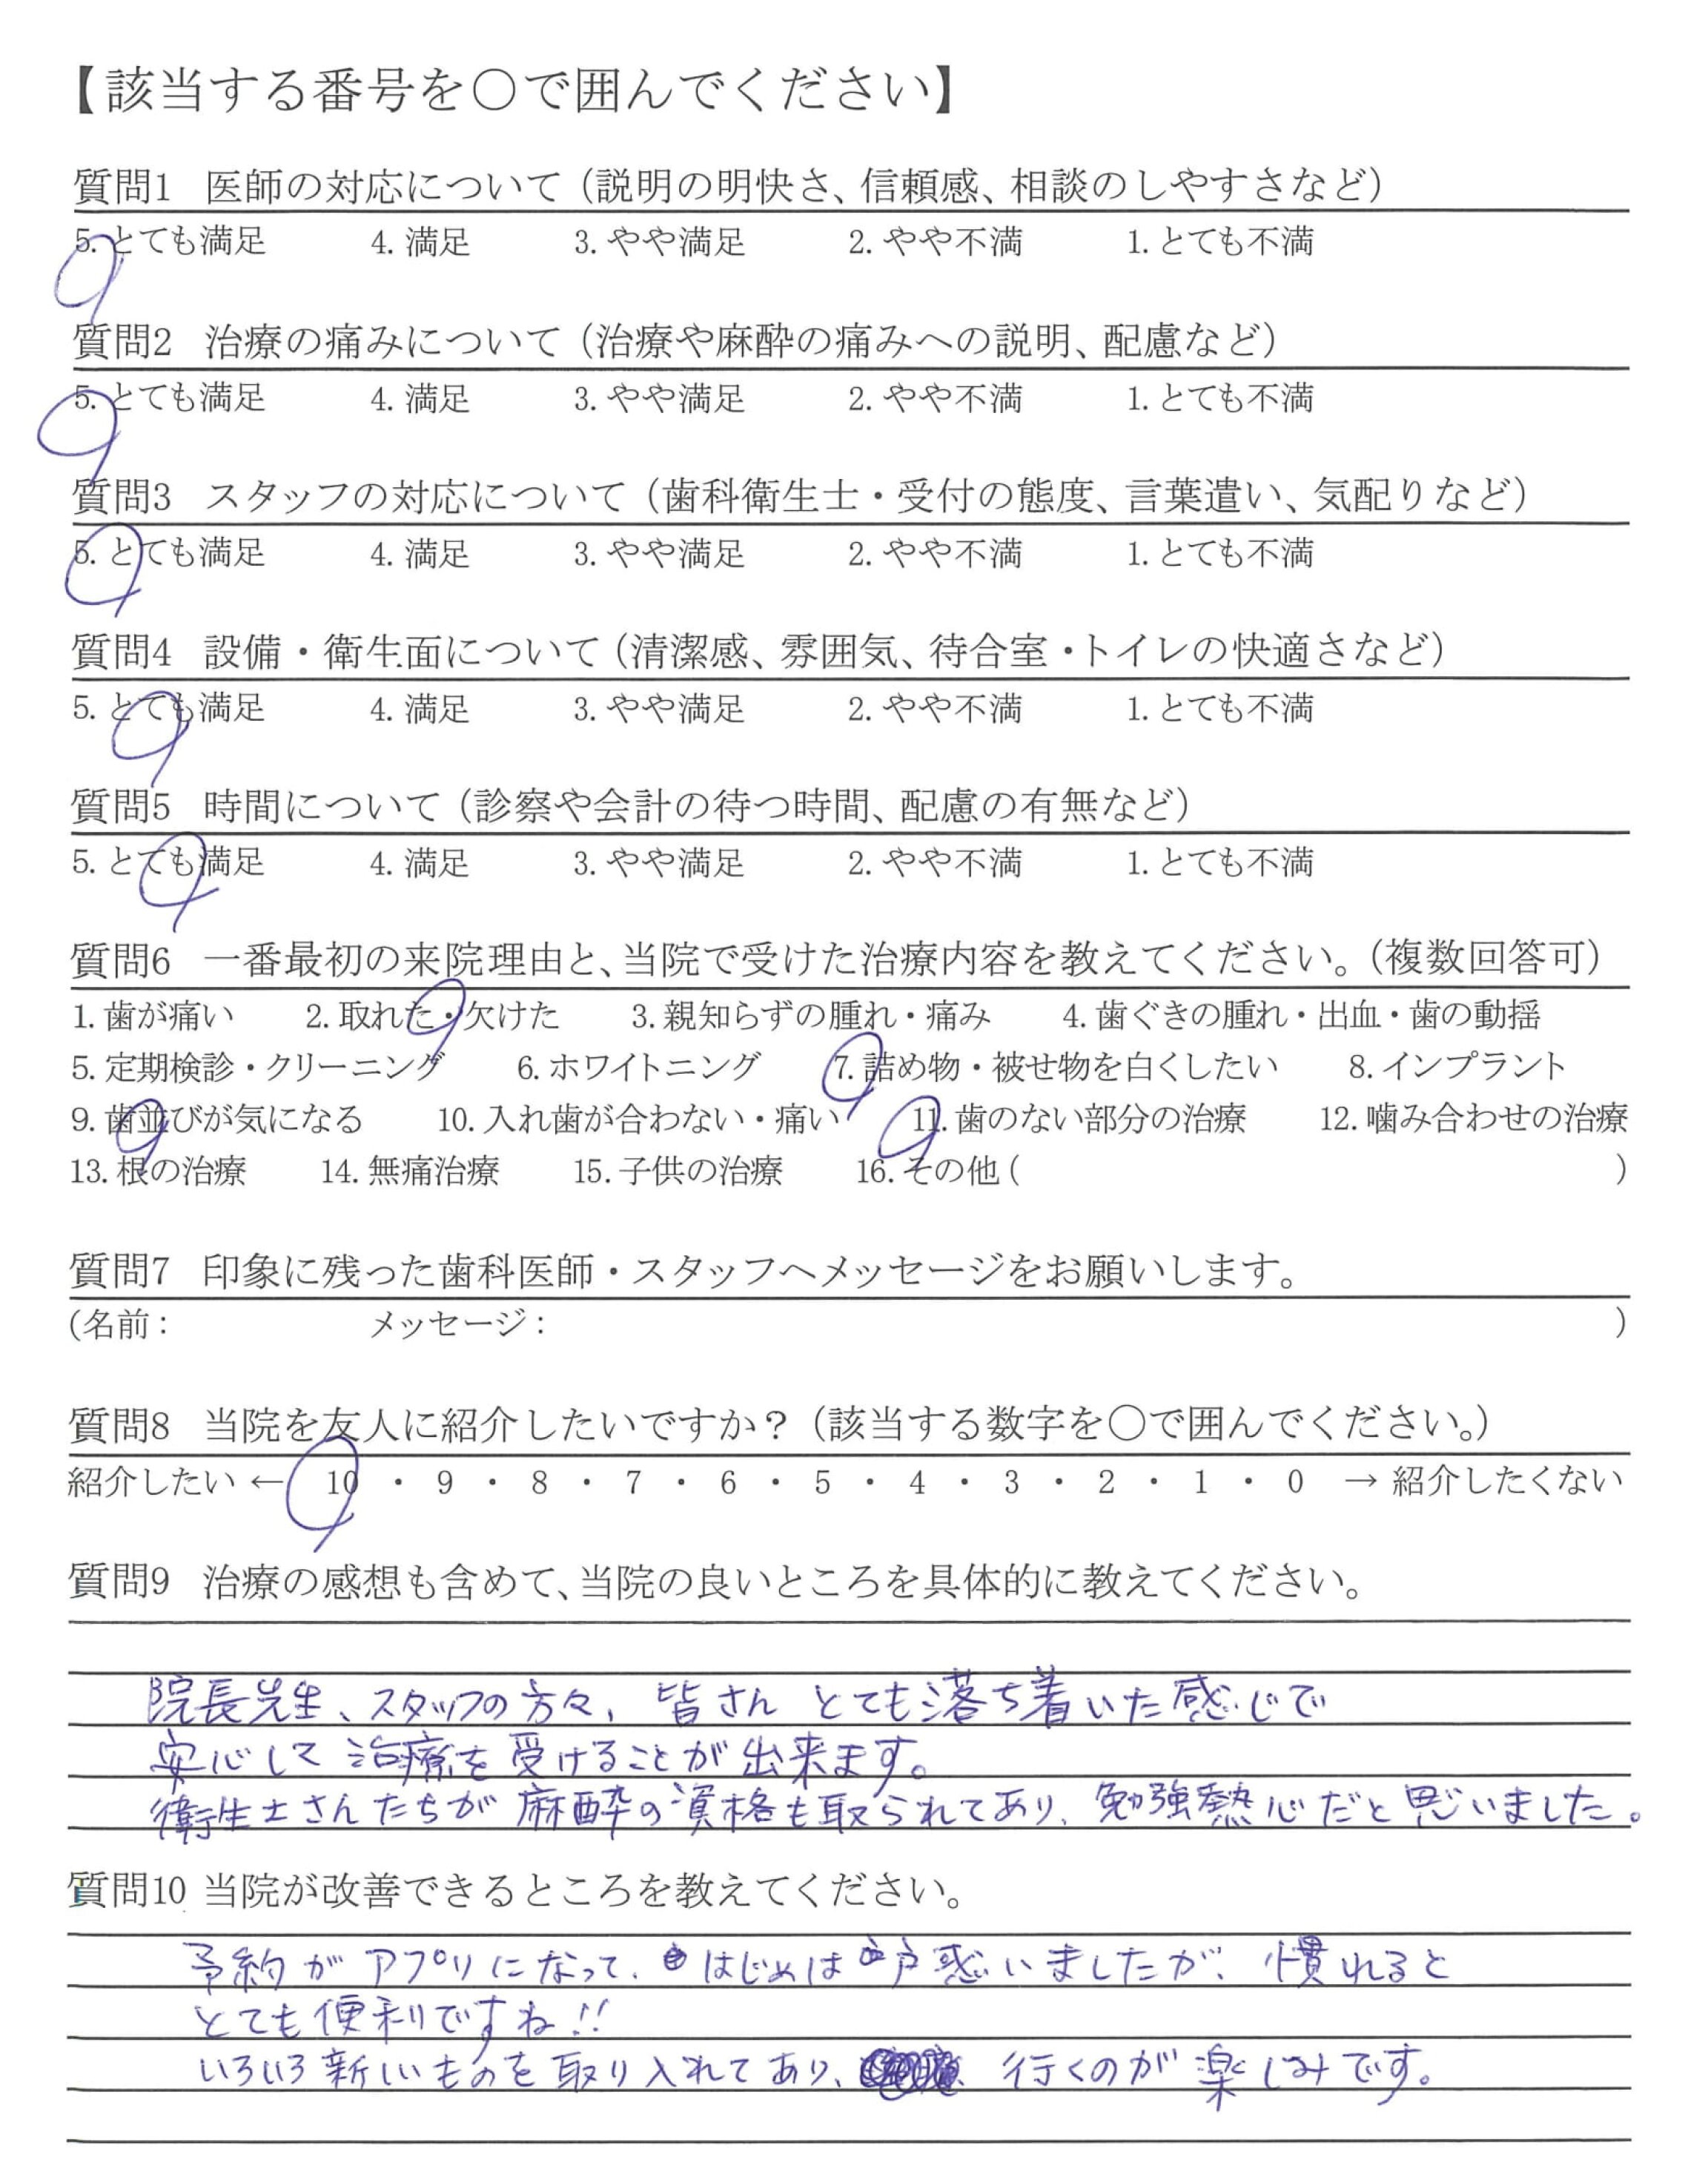 【該当する番号を〇で囲んでください】
質問1 医師の対応について（説明の明快さ、信頼感、相談のしやすさなど）
5. とても満足 4. 満足 3. やや満足 2. やや不満 1. とても不満
質問2 治療の痛みについて（治療や麻酔の痛みへの説明、配慮など）
5. とても満足 4. 満足 3. やや満足 2. やや不満 1. とても不満
質問3 スタッフの対応について（歯科衛生士・受付の態度、言葉遣い、気配りなど）
5. とても満足 4. 満足 3. やや満足 2. やや不満 1. とても不満
質問4 設備・衛生面について（清潔感、雰囲気、待合室・トイレの快適さなど）
5. とても満足 4. 満足 3. やや満足 2. やや不満 1. とても不満
質問5 時間について（診察や会計の待つ時間、配慮の有無など）
5. とても満足 4. 満足 3. やや満足 2. やや不満 1. とても不満
質問6 一番最初の来院理由と、当院で受けた治療内容を教えてください。（複数回答可）
1. 歯が痛い 2. 取れた・欠けた 3. 親知らずの腫れ・痛み 4. 歯ぐきの腫れ・出血・歯の動揺
5. 定期検診・クリーニング 6. ホワイトニング 7. 詰め物・被せ物を白くしたい 8. インプラント
9. 歯並びが気になる 10. 入れ歯が合わない・痛い 11. 歯のない部分の治療 12. 噛み合わせの治療
13. 根の治療 14. 無痛治療 15. 子供の治療 16. その他（ ）
質問7 印象に残った歯科医師・スタッフへメッセージをお願いします。
（名前： メッセージ： ）
質問8 当院を友人に紹介したいですか？（該当する数字を〇で囲んでください。）
紹介したい ← 10 ・ 9 ・ 8 ・ 7 ・ 6 ・ 5 ・ 4 ・ 3 ・ 2 ・ 1 ・ 0 → 紹介したくない
質問9 治療の感想も含めて、当院の良いところを具体的に教えてください。
院長先生、スタッフの方々、皆さん とても落ち着いた感じで
安心して治療を受けることが出来ます。
衛生士さんたちが麻酔の資格も取られてあり、勉強熱心だと思いました。
質問10 当院が改善できるところを教えてください。
予約がアプリになって、はじめは戸惑いましたが、慣れると
とても便利ですね!!
いろいろ新しいものを取り入れてあり、行くのが楽しみです。